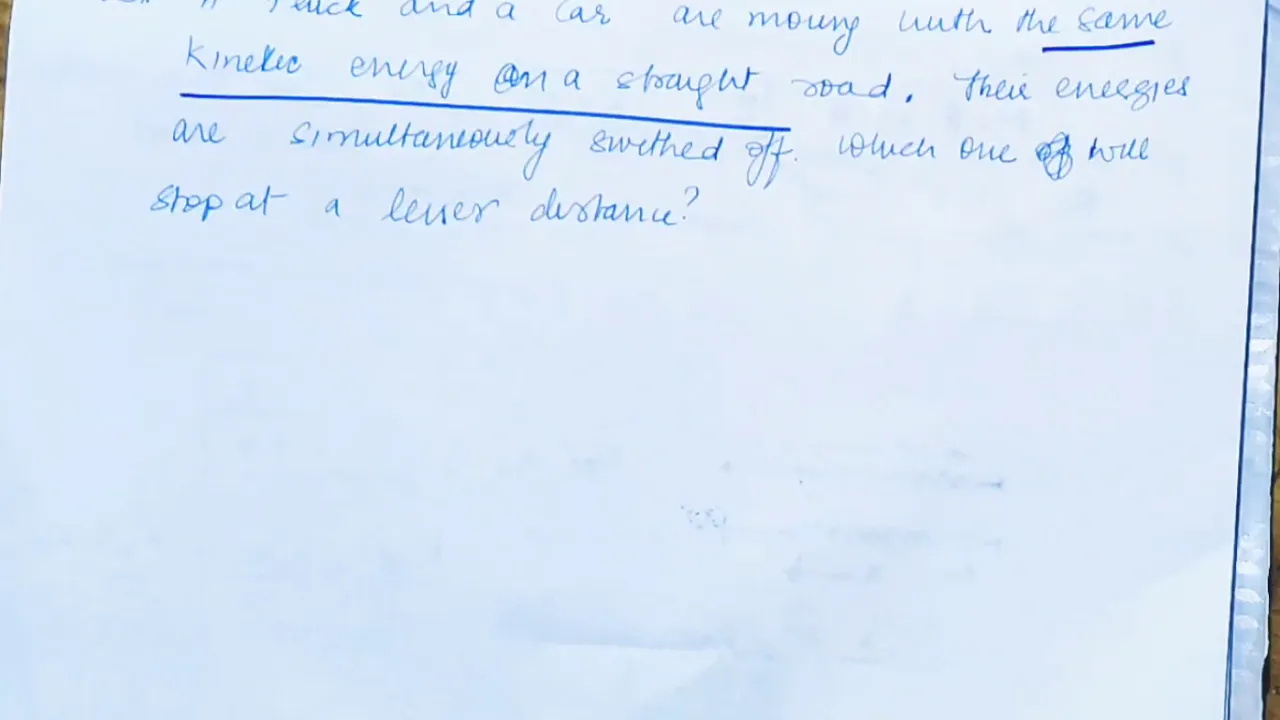 A Truck and a Car are moving with the same
Kinetic energy on a straight road. Their energies
are simultaneously swithed off. Which one will
stop at a lesser distance?